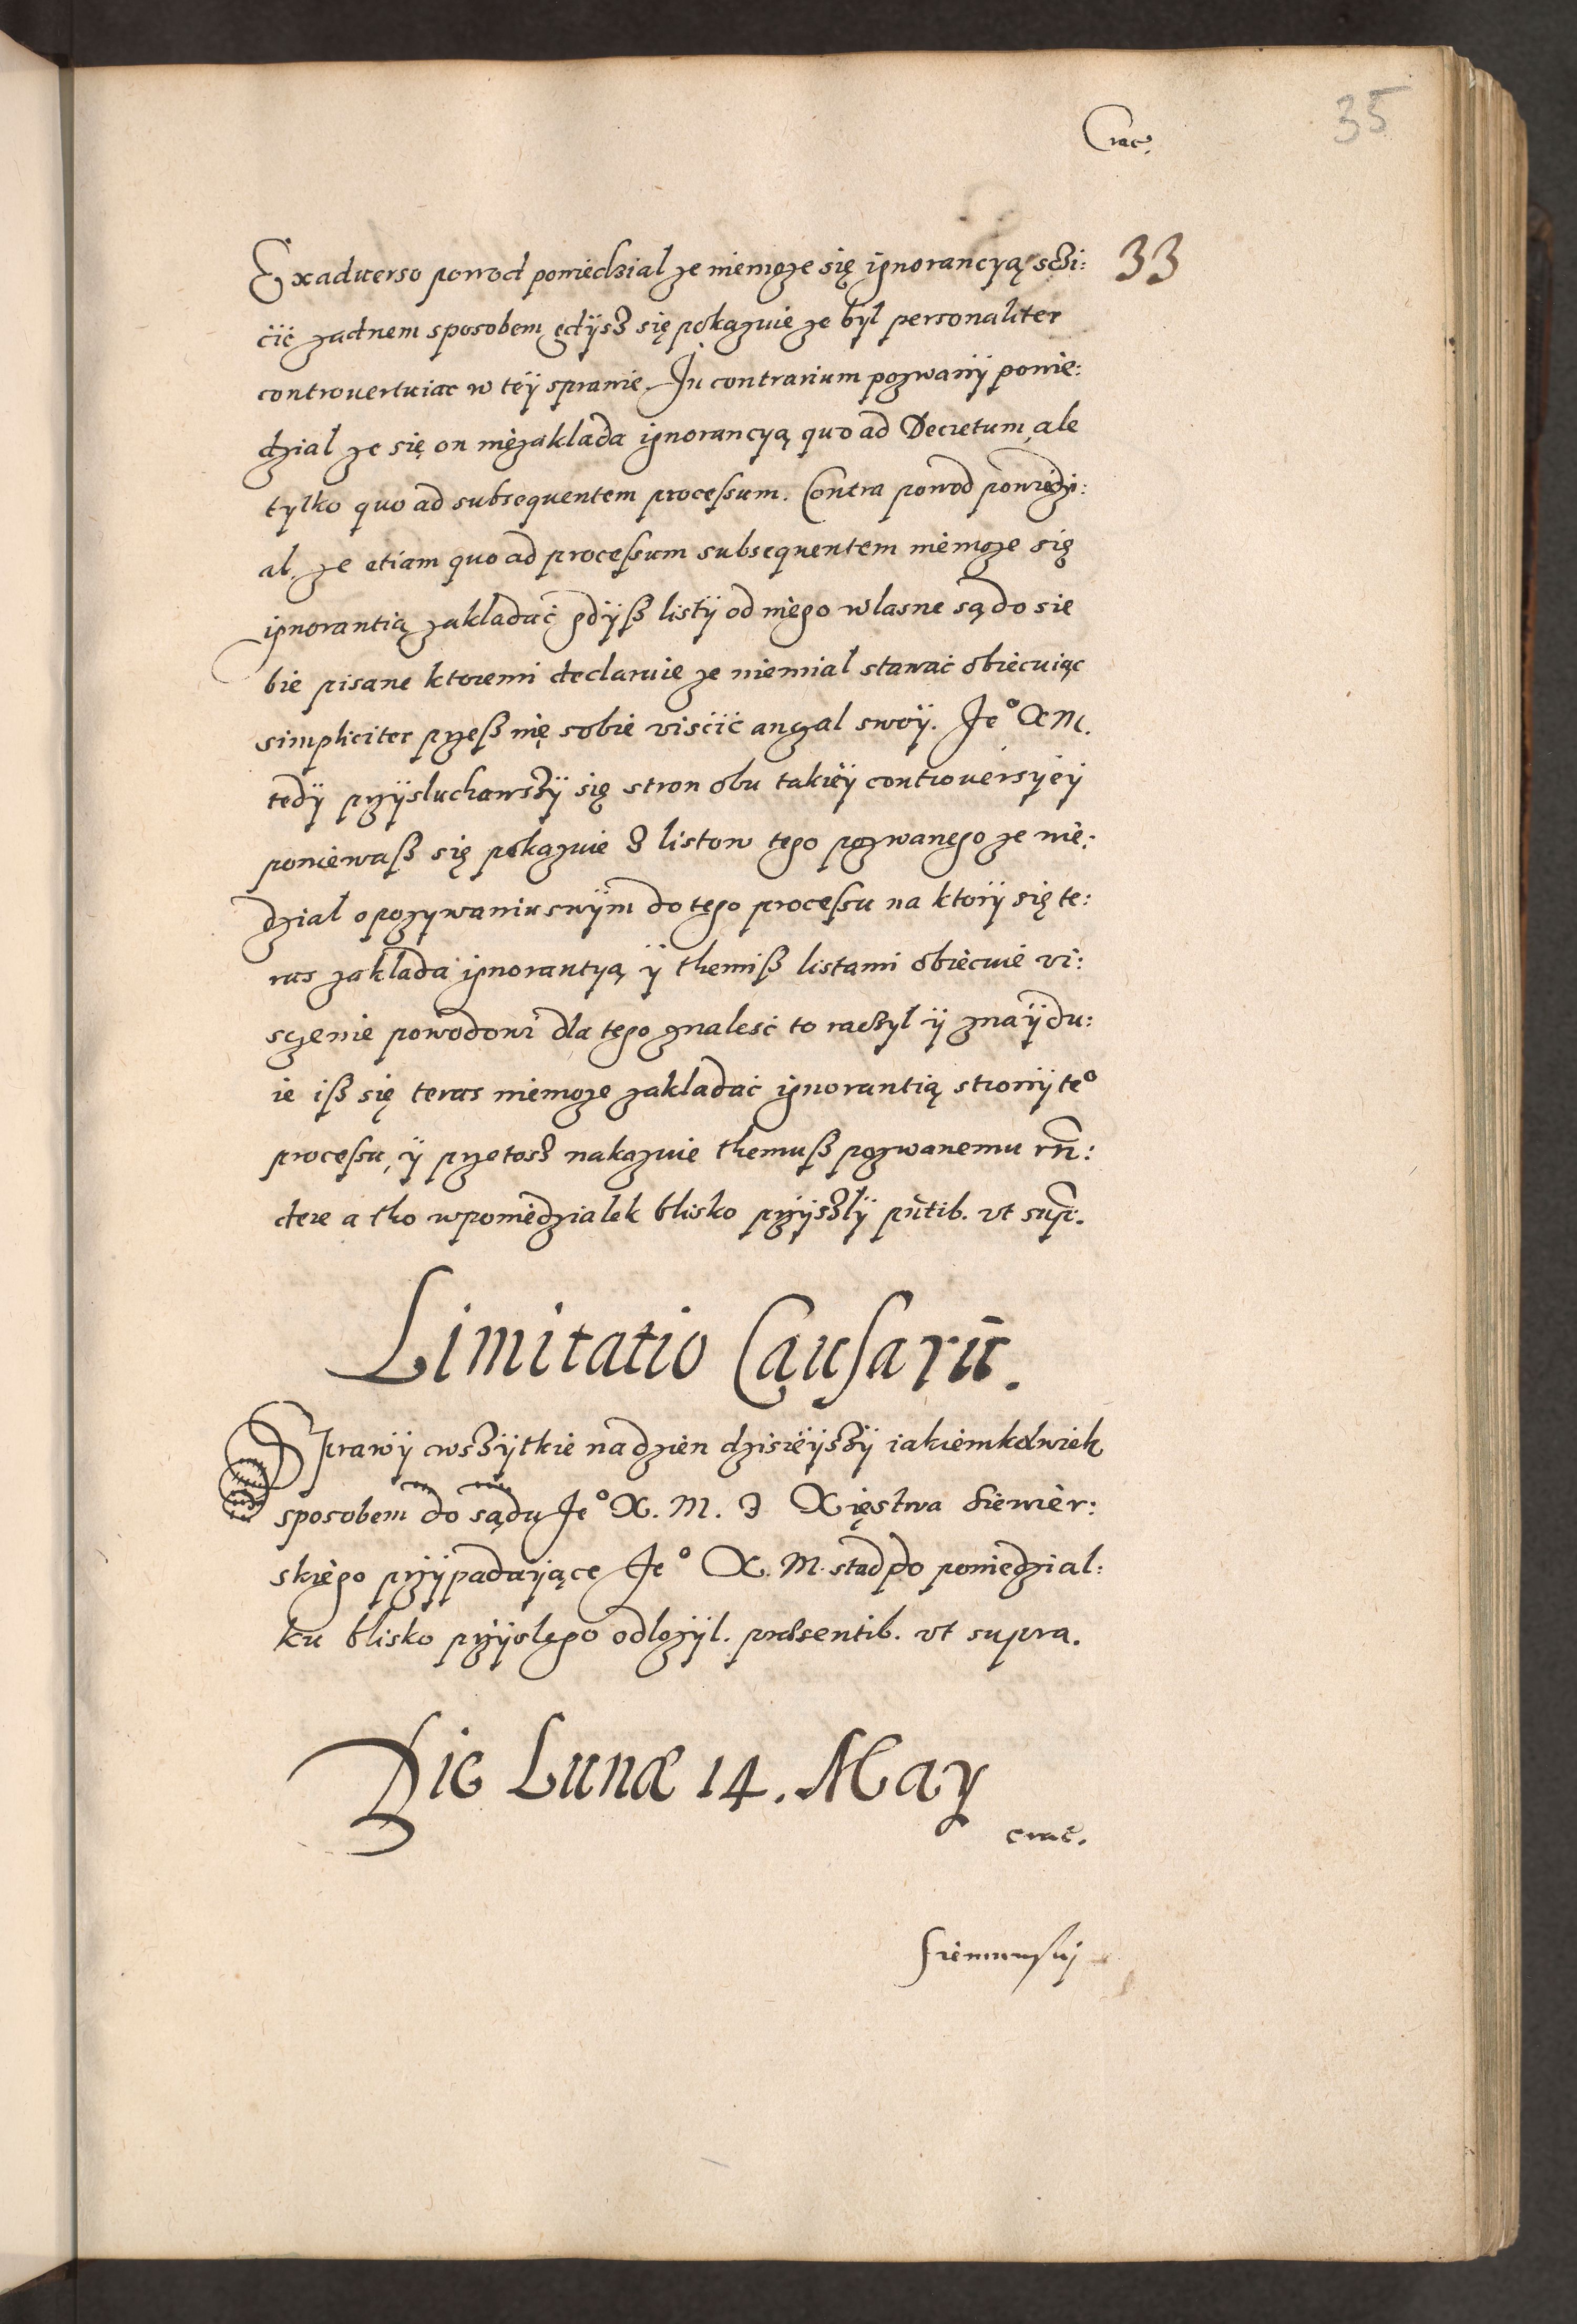 35
Crac.
33
Ex aduerso powod powiedzial ze niemoze się ignorancyą sczi:
ćić zadnem sposobem gdÿsz się pokazuie ze bÿl personaliter
controuertuiac w teÿ sprawie. In contrarium pozwanÿ powie:
dzial ze się on niezaklada ignorancyą quo ad Decretum, ale
tylko quo ad subsequentem processum. Contra powod powiedzi:
al. ze etiam quo ad processum subsequentem niemoze się
ignorantią zakladać gdÿsz listÿ od niego wlasne są do sie
bie pisane ktoremi declaruie ze niemial stawać obiecuiąc
simpliciter przesz nię sobie viśćić angal swoÿ. Je° X M.
tedÿ przÿsluchawszÿ się stron obu takieÿ controuersyeÿ
poniewasz się pokazuie z listow tego pozwanego ze wie:
dzial o pozywaniu swÿm do tego processu na ktorÿ się te:
ras zaklada ignorantyą ÿ themisz listami obiecuie vi:
sczenie powodowi dla tego znaleść to raczyl ÿ znaÿdu:
ie isz się teras niemoze zakladać ignorantią stronÿ te°
processu, ÿ przetosz nakazuie themusz pozwanemu rñ:
dere a tho w poniedzialek blisko przÿszlÿ pñtib. vt supr.
Limitatio Causarū.
Sprawÿ wszÿtkie na dzien dzisieÿszÿ iakiemkolwiek
sposobem do sądu Je° X. M. z Xięstwa Siewier:
skiego przÿpadaiące Je° X. M. stad do poniedzial:
ku blisko przÿslego odlozÿl. præsentib. vt supra.
Die Lunæ 14. May
crac.